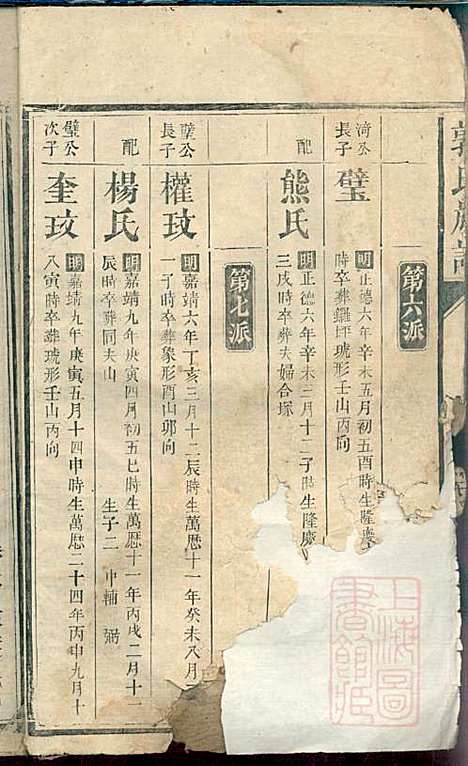 郭氏族譜
第六派
漪公
長子
璧
明正德六年辛未五月初五酉時生隆慶
時卒葬鑼坪琥形壬山丙向
配
熊氏
明正德六年辛未三月十二子時生隆慶
三戌時卒葬夫婦合塚
第七派
璧公
長子
權玟
明嘉靖六年丁亥三月十二辰時生萬曆十一年癸未八月
一子時卒葬象形酉山卯向
配
楊氏
明嘉靖九年庚寅四月初五巳時生萬曆十一年丙戌二月十一
辰時卒葬同夫山
生子二
中輔
弼
璧公
次子
奎玟
明嘉靖九年庚寅五月十四申時生萬曆二十四年丙申九月十
八寅時卒葬琥形壬山丙向
上海圖書館藏